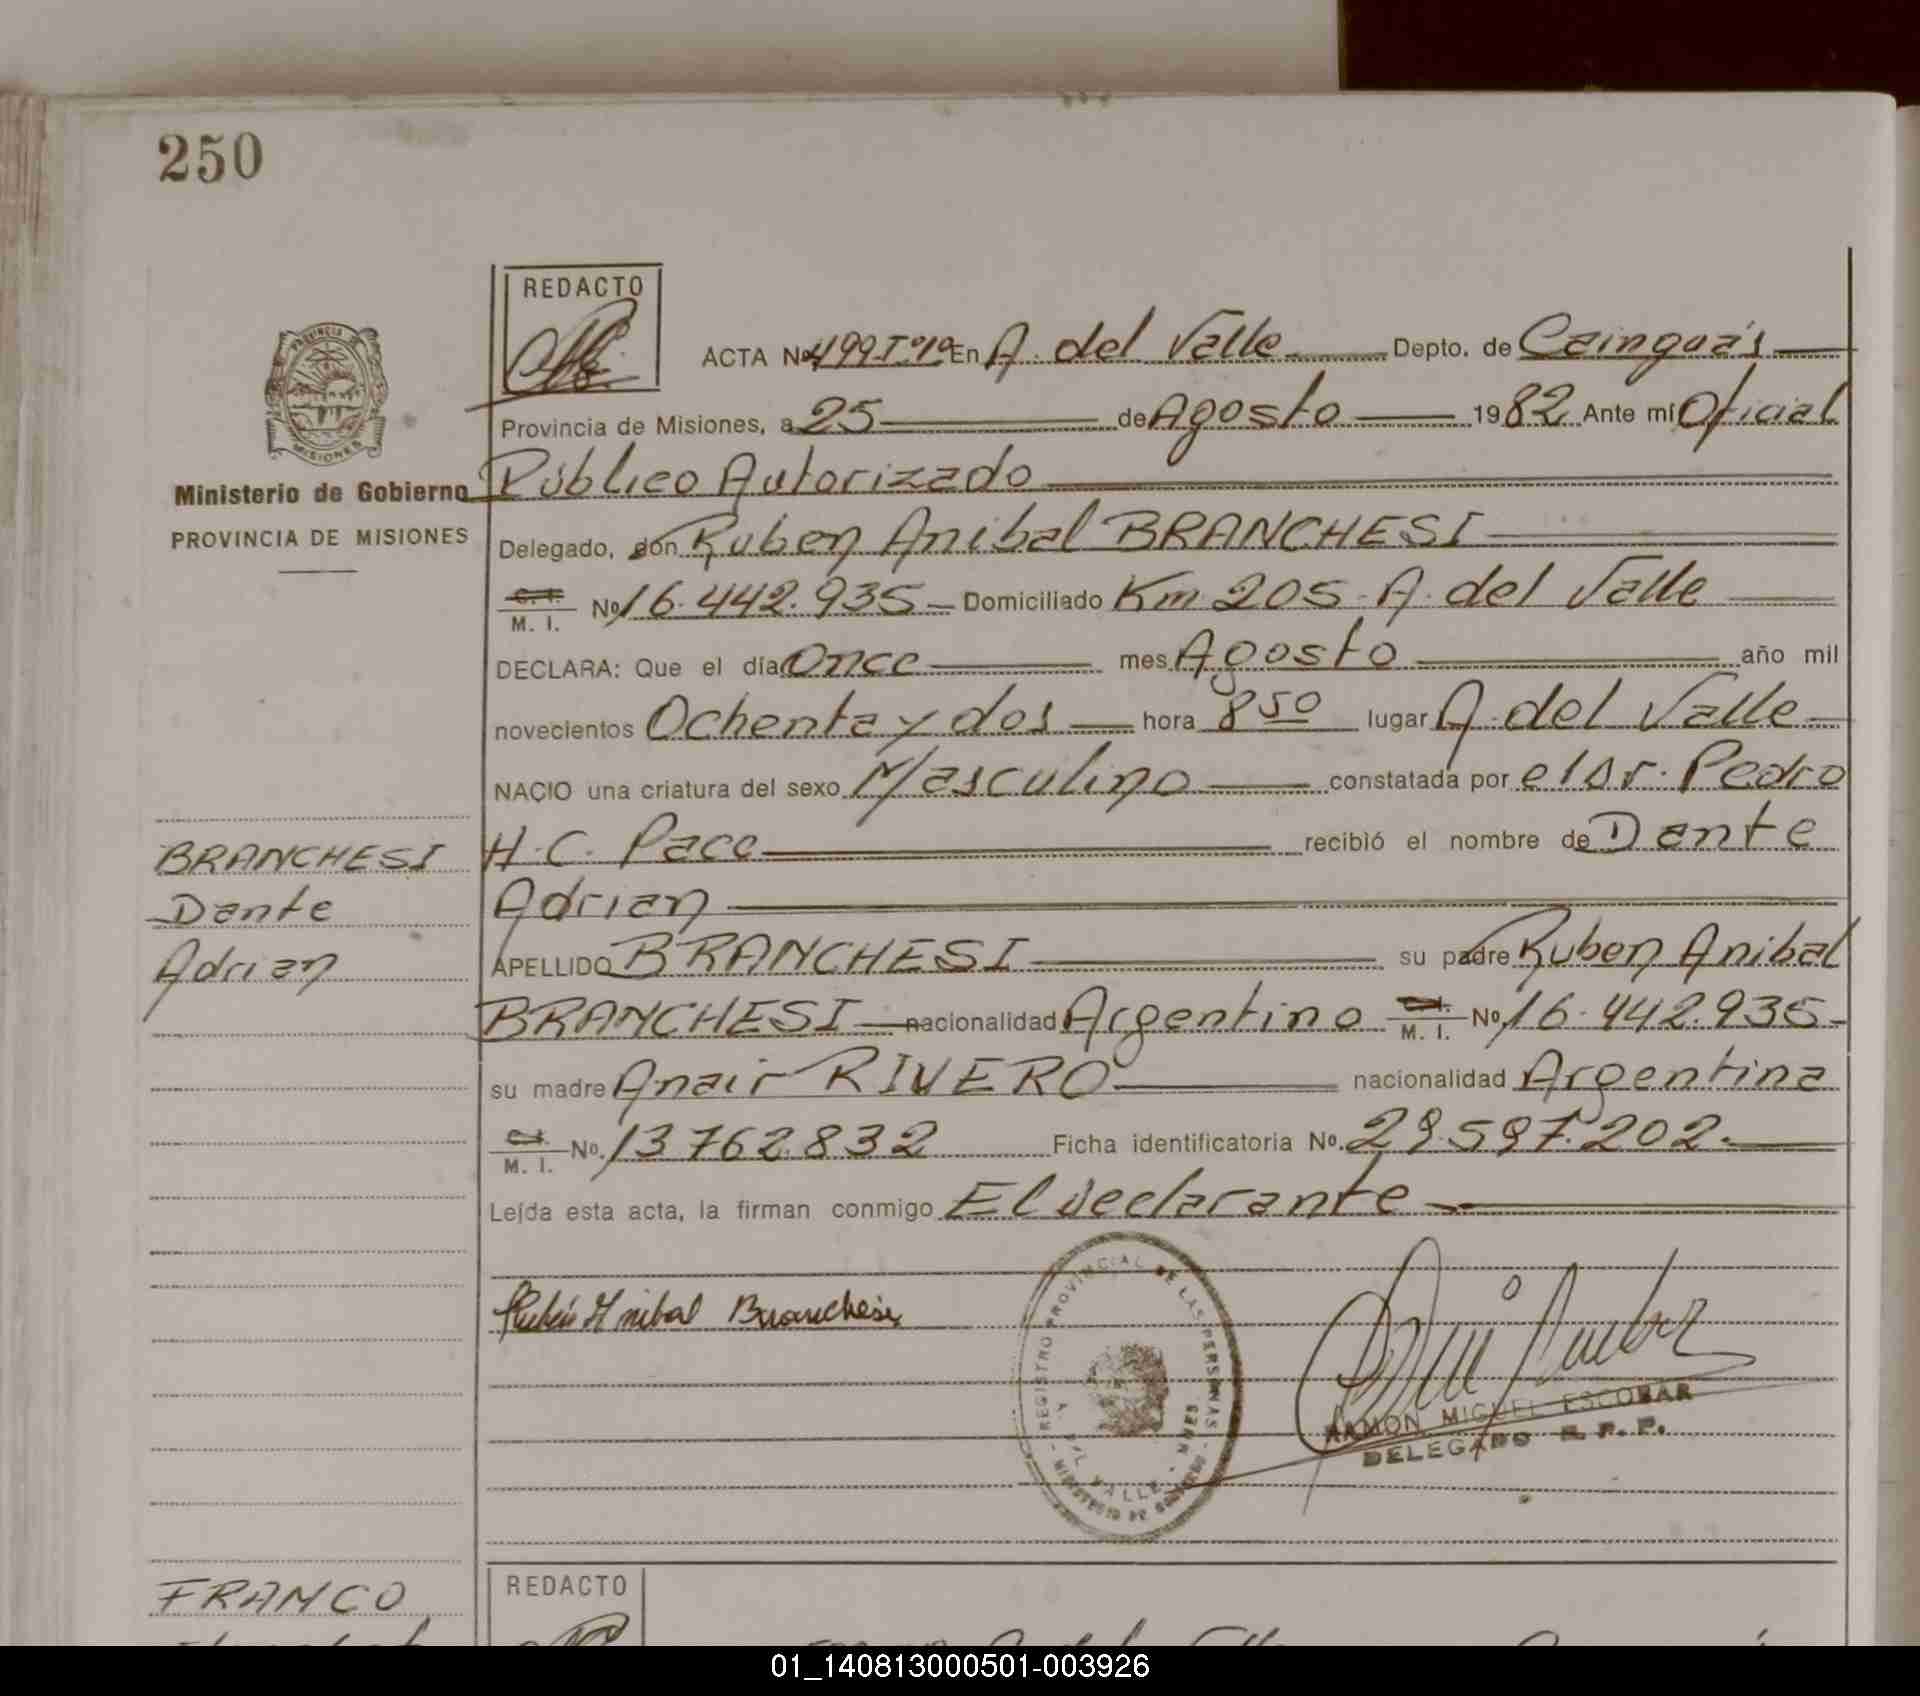 250
REDACTO
PROVINCIA DE MISIONES
ACTA Nº 499 Tº 1º En A. del Valle Depto. de Cainguás
Provincia de Misiones, a 25 de Agosto 1982. Ante mí Oficial
Público Autorizado
Ministerio de Gobierno
PROVINCIA DE MISIONES
Delegado, don Ruben Anibal BRANCHESI
C. I.
M. I. Nº 16.442.935 Domiciliado Km 205 - A. del Valle
DECLARA: Que el día Once mes Agosto año mil
novecientos Ochenta y dos hora 8 50 lugar A. del Valle
NACIO una criatura del sexo Masculino constatada por el Dr. Pedro
H. C. Pace recibió el nombre de Dante
Adrian
BRANCHESI
Dante
Adrian
APELLIDO BRANCHESI su padre Ruben Anibal
BRANCHESI nacionalidad Argentino C.I. M. I. Nº 16.442.935
su madre Anair RIVERO nacionalidad Argentina
C.I. M. I. Nº. 13.762.832 Ficha identificatoria Nº. 29.597.202.
Leída esta acta, la firman conmigo El declarante
Rubén Anibal Branchesi
REGISTRO PROVINCIAL DE LAS PERSONAS
A. DEL VALLE - MNES
MINISTERIO DE GOBIERNO
RAMON MIGUEL ESCOBAR
DELEGADO R. P. P.
FRANCO
REDACTO
01_140813000501-003926